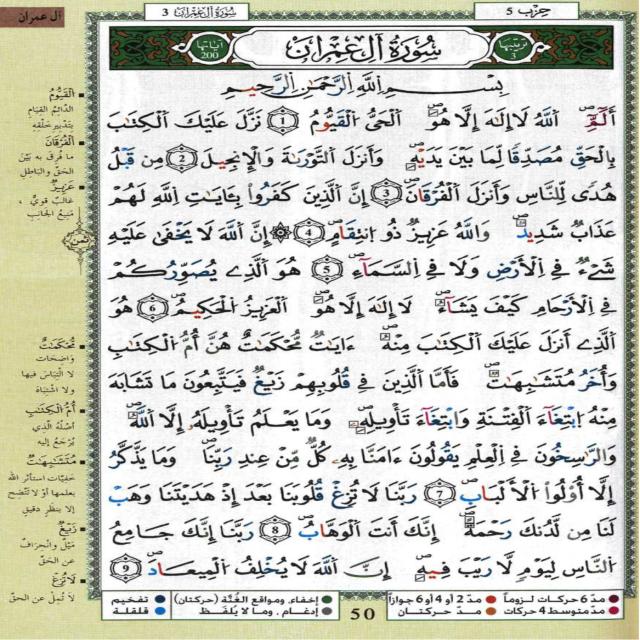 آل عمران
سُورَةُ آلِ عِمْرَان 3
حِزْب 5
آيَاتُهَا 200
سُورَةُ آلِ عِمْرَانَ
تَرْتِيبُهَا 3
بِسْمِ اِللَّهِ اِلرَّحْمَٰنِ اِلرَّحِيمِ
أَلَمِّٓ اَللَّهُ لَا إِلَٰهَ إِلَّا هُوَ اَلْحَىُّ الْقَيُّومُ 1 نَزَّلَ عَلَيْكَ اَلْكِتَٰبَ
بِالْحَقِّ مُصَدِّقاً لِّمَا بَيْنَ يَدَيْهِ وَأَنزَلَ اَلتَّوْرَىٰةَ وَالْإِنجِيلَ 2 مِن قَبْلُ
هُدىً لِّلنَّاسِ وَأَنزَلَ اَلْفُرْقَانَ 3 إِنَّ اَلَّذِينَ كَفَرُواْ بِـَٔايَٰتِ اِللَّهِ لَهُمْ
عَذَابٌ شَدِيدٌ وَاللَّهُ عَزِيزٌ ذُو اُنتِقَامٍ 4 إِنَّ اَللَّهَ لَا يَخْفَىٰ عَلَيْهِ
شَىْءٌ فِى اِلْأَرْضِ وَلَا فِى اِلسَّمَآءِ 5 هُوَ اَلَّذِى يُصَوِّرُكُمْ
فِى اِلْأَرْحَامِ كَيْفَ يَشَآءُ لَا إِلَٰهَ إِلَّا هُوَ اَلْعَزِيزُ اُلْحَكِيمُ 6 هُوَ
اَلَّذِى أَنزَلَ عَلَيْكَ اَلْكِتَٰبَ مِنْهُ ءَايَٰتٌ مُّحْكَمَٰتٌ هُنَّ أُمُّ اُلْكِتَٰبِ
وَأُخَرُ مُتَشَٰبِهَٰتٌ فَأَمَّا اَلَّذِينَ فِى قُلُوبِهِمْ زَيْغٌ فَيَتَّبِعُونَ مَا تَشَٰبَهَ
مِنْهُ اُبْتِغَآءَ اَلْفِتْنَةِ وَابْتِغَآءَ تَأْوِيلِهِ وَمَا يَعْلَمُ تَأْوِيلَهُ إِلَّا اَللَّهُ
وَالرَّٰسِخُونَ فِى اِلْعِلْمِ يَقُولُونَ ءَامَنَّا بِهِ كُلٌّ مِّنْ عِندِ رَبِّنَا وَمَا يَذَّكَّرُ
إِلَّا أُوْلُواْ اُلْأَلْبَٰبِ 7 رَبَّنَا لَا تُزِغْ قُلُوبَنَا بَعْدَ إِذْ هَدَيْتَنَا وَهَبْ
لَنَا مِن لَّدُنكَ رَحْمَةً إِنَّكَ أَنتَ اَلْوَهَّابُ 8 رَبَّنَا إِنَّكَ جَامِعُ
اُلنَّاسِ لِيَوْمٍ لَّا رَيْبَ فِيهِ إِنَّ اَللَّهَ لَا يُخْلِفُ اُلْمِيعَادَ 9
الْقَيُّومُ
الدَّائِمُ القِيَامِ
بِتَدْبِيرِ خَلْقِهِ
الْفُرْقَانَ
ما فُرِقَ به بَيْنَ
الحَقِّ والبَاطِلِ
عَزِيزٌ
غَالِبٌ قَوِيٌّ ،
مَنِيعُ الجَانِبِ
ثمن
مُّحْكَمَٰتٌ
وَاضِحَات
لا الْتِبَاسَ فيها
ولا اشْتِبَاهَ
أُمُّ الْكِتَٰبِ
أَصْلُهُ الَّذِي
يُرْجَعُ إليه
مُتَشَٰبِهَٰتٌ
خَفِيَّات استَأْثَر الله
بعلمها أَوْ لا تَتَّضِح
إلا بنظرٍ دقيقٍ
زَيْغٌ
مَيْلٌ وانْحِرَافٌ
عن الحَقِّ
لَا تُزِغْ
لا تُمِلْ عن الحقّ
مدّ 6 حركات لزوماً
مدّ 2 أو 4 أو 6 جوازاً
إخفاء، ومواقع الغُنَّة (حركتان)
تفخيم
مدّ متوسط 4 حركات
مدّ حركتان
إدغام ، وما لا يُلفَظ
قلقلة
50